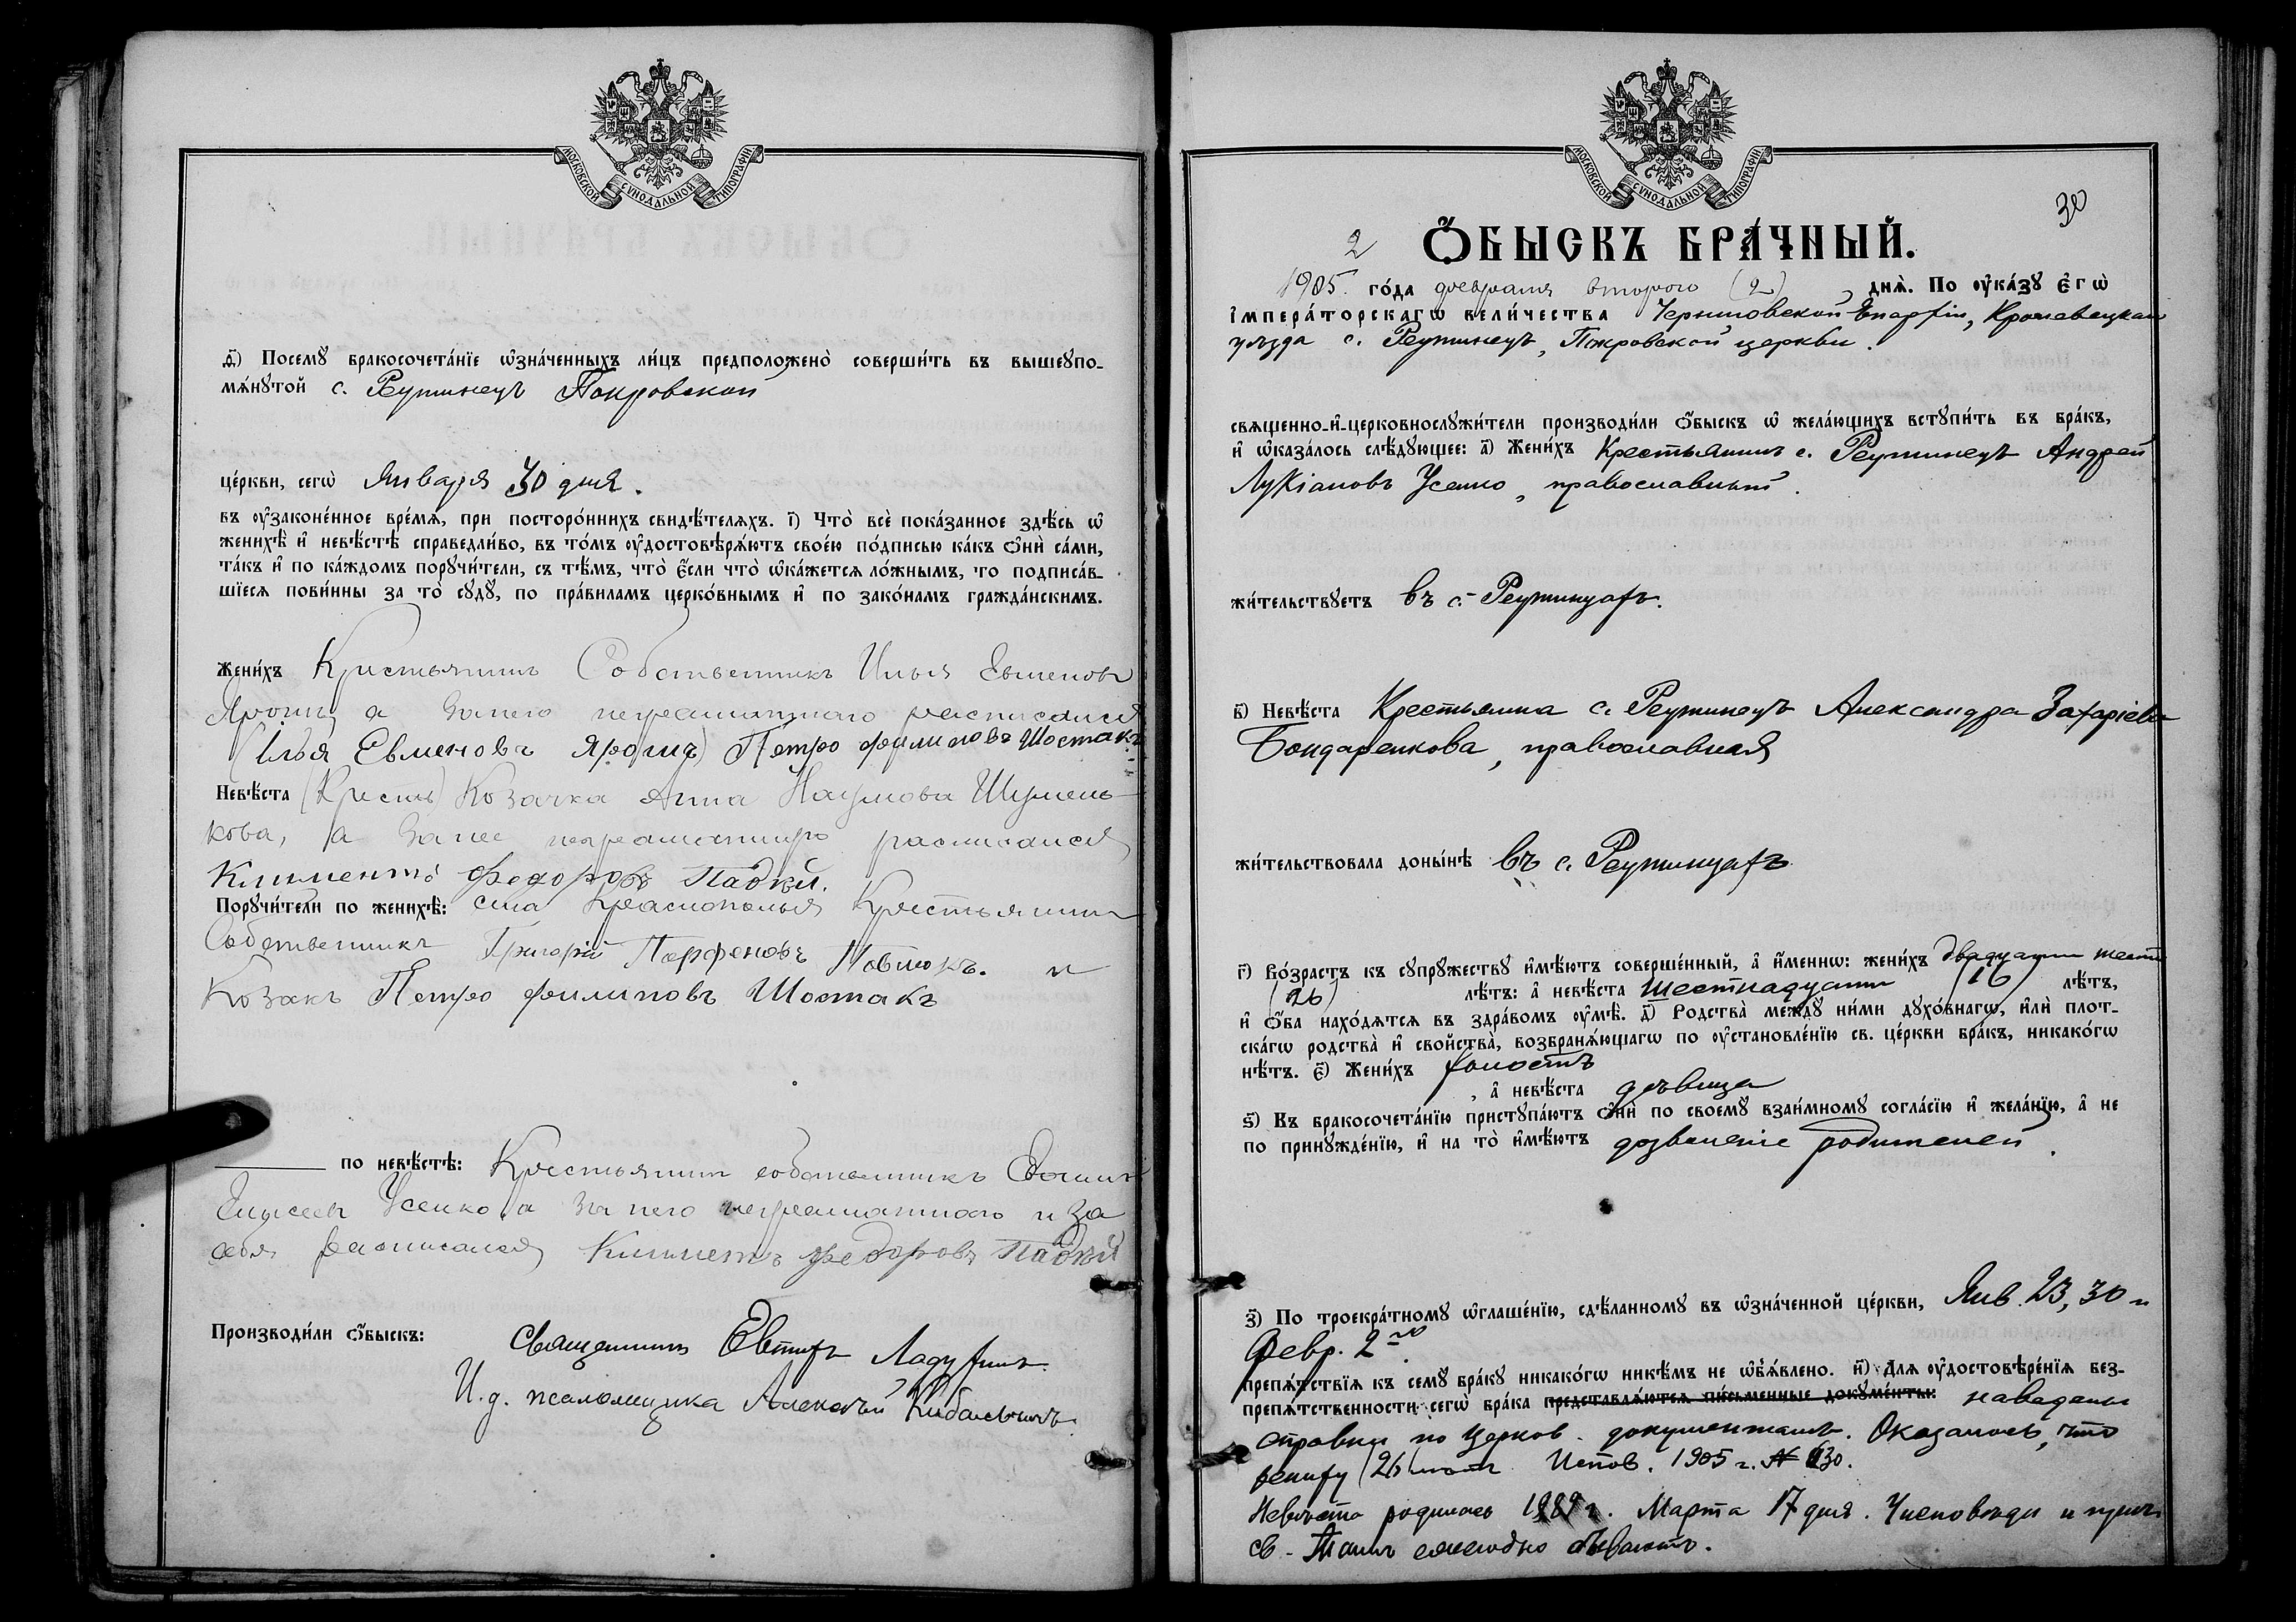 МОСКОВСКОЙ СѴНОДАЛЬНОЙ ТИПОГРАФІИ
д҃) Посемꙋ̀ бракосочета́нїе ѡ҆зна́ченныхъ ли́цъ предположено̀ соверши́ть въ вышеꙋпо-
мѧ́нꙋтой с. Реутинецъ Покровской
це́ркви, сегѡ̀ Января 30 дня.
въ ᲂу҆законе́нное вре́мѧ, при посторо́ннихъ свидѣ́телѧхъ. і҃) Что̀ всѐ пока́занное здѣ́сь ѡ҆
женихѣ̀ и҆ невѣ́стѣ справедли́во, въ то́мъ ᲂу҆достовѣрѧ́ютъ свое́ю по́дписью ка́къ ѻ҆нѝ са́ми,
та́къ и҆ по ка́ждомъ порꙋчи́тели, съ тѣ́мъ, что̀ є҆́сли что̀ ѡ҆ка́жетсѧ ло́жнымъ, то подписа́в-
шїесѧ пови́нны за то̀ сꙋдꙋ̀, по пра́виламъ церко́внымъ и҆ по зако́намъ гражда́нскимъ.
Жени́хъ Кристьянинъ Собственникъ Илья Евменовъ
Ярошъ а за него неграмотного расписался
(Илья Евменовъ Ярошъ) Петро Филиповъ Шостакъ
Невѣ́ста (Кресть) Козачка Анна Наумова Шумень-
кова, а за нее неграмотную расписался
Климентъ Федоровъ
Порꙋчи́тели по женихѣ̀: села Краснополья Крестьянинъ
Собственникъ Григорій Парфеновъ и
Козакъ Петро Филиповъ Шостакъ
по невѣ́стѣ: Крестьянинъ собственникъ
Усенко а за него неграмотного и за
себя расписался Климентъ Федоровъ
Производи́ли ѻ҆́быскъ: Священникъ Евтихъ
И. д. псаломщика Алексѣй Кибальчичъ.
МОСКОВСКОЙ СѴНОДАЛЬНОЙ ТИПОГРАФІИ
30
2 Ѻ҆́БЫСКЪ БРА́ЧНЫЙ.
1905 го́да февраля второго (2) днѧ̀. По ᲂу҆ка́зꙋ Є҆гѡ̀
І҆мпера́торскагѡ вели́чества Черниговской Епархіи, Кролевецкаго
уѣзда с. Реутинецъ, Покровской церкви.
свѧщенно-и҆-церковнослꙋжи́тели производи́ли ѻ҆́быскъ ѡ҆ жела́ющихъ встꙋпи́ть въ бра́къ,
и҆ ѡ҆каза́лось слѣ́дꙋющее: а҃) Жени́хъ Крестьянинъ с. Реутинецъ Андрей
Лукіановъ Усенко, православный.
жи́тельствꙋетъ въ с. Реутинцахъ.
в҃) Невѣ́ста Крестьянка с. Реутинецъ Александра Захаріева
Бондаренкова, православная
жи́тельствовала доны́нѣ въ с. Реутинцахъ
г҃) Во́зрастъ къ сꙋпрꙋ́жествꙋ и҆мѣ́ютъ соверше́нный, а҆ и҆́меннѡ: жени́хъ двадцати шести
(26) лѣ́тъ: а҆ невѣ́ста шестнадцати (16) лѣ́тъ,
и҆ ѻ҆́ба нахо́дѧтсѧ въ здра́вомъ ᲂу҆мѣ̀. д҃) Родства̀ междꙋ̀ ни́ми дꙋхо́внагѡ, и҆лѝ плот-
ска́гѡ родства̀ и҆ свойства̀, возбранѧ́ющагѡ по ᲂу҆становле́нїю св. це́ркви бра́къ, никако́гѡ
нѣ́тъ. є҃) Жени́хъ холостъ
, а҆ невѣ́ста дѣвица
ѕ҃) Къ бракосочета́нїю пристꙋпа́ютъ ѻ҆нѝ по своемꙋ̀ взаи́мномꙋ согла́сїю и҆ жела́нїю, а҆ не
по принꙋжде́нїю, и҆ на то̀ и҆мѣ́ютъ дозволеніе родителей.
з҃) По троекра́тномꙋ ѡ҆глаше́нїю, сдѣ́ланномꙋ въ ѡ҆зна́ченной це́ркви, Янв. 23, 30 и
Февр. 2го
препѧ́тствїѧ къ семꙋ̀ бра́кꙋ никако́гѡ никѣ́мъ не ѡ҆б̾ѧ́влено. и҃) Длѧ ᲂу҆достовѣре́нїѧ без-
препѧ́тственности сегѡ̀ бра́ка представлѧ́ютсѧ пи́сьменные докꙋме́нты: наведены
справки по церков. документамъ. Оказалось, что
жениху 26 лѣтъ Испов. 1905 г. № 130.
Невѣста родилась 1889 г. Марта 17 дня. У исповѣди и прич.
св. Таинъ ежегодно бываютъ.